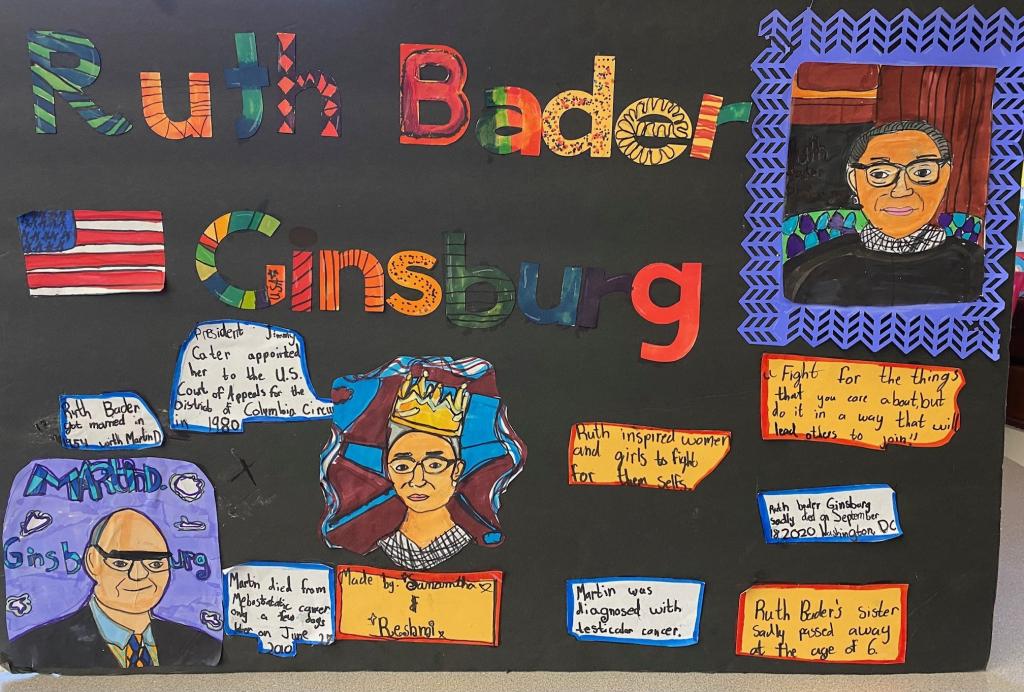 Ruth Bader
Ginsburg
President Jimmy
Cater appointed
her to the U.S.
Court of Appeals for the
District of Columbia Circu
in 1980
Ruth Bader
got married in
1954 with Martin D
MARTIN D.
Ginsburg
Martin died from
cancer
only a few days
on June
2010
Made by: Samantha
&
Reshmi
Ruth inspired women
and girls to fight
for them selfs.
Martin was
diagnosed with
testicular cancer.
"Fight for the things
that you care about, but
do it in a way that will
lead others to join"
Ruth bader Ginsburg
sadly died on September
18 2020 Washington, DC
Ruth Bader's sister
sadly passed away
at the age of 6.